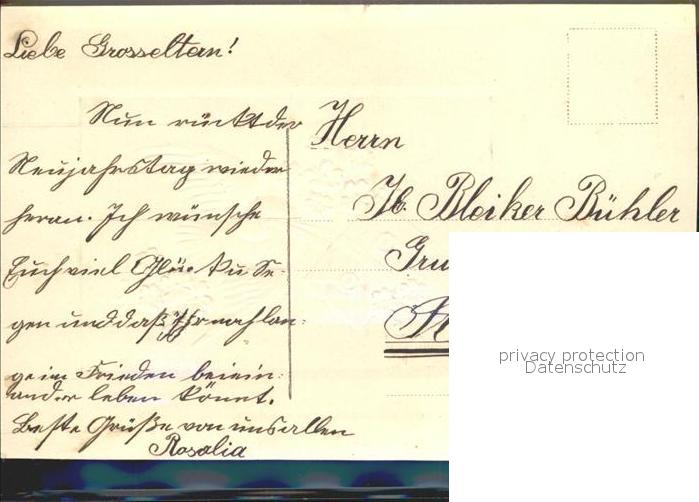 Liebe Grosseltern!
Nun rückt der
Neujahrstag wieder
heran. Ich wünsche
Euch viel Glü. ku Se-
gen und daß Ihr noch lan-
ge im Frieden beiein-
ander leben könnt.
Beste Grüße von uns allen
Rosalia
Herrn
Jb. Bleiker Bühler
Gru
privacy protection
Datenschutz